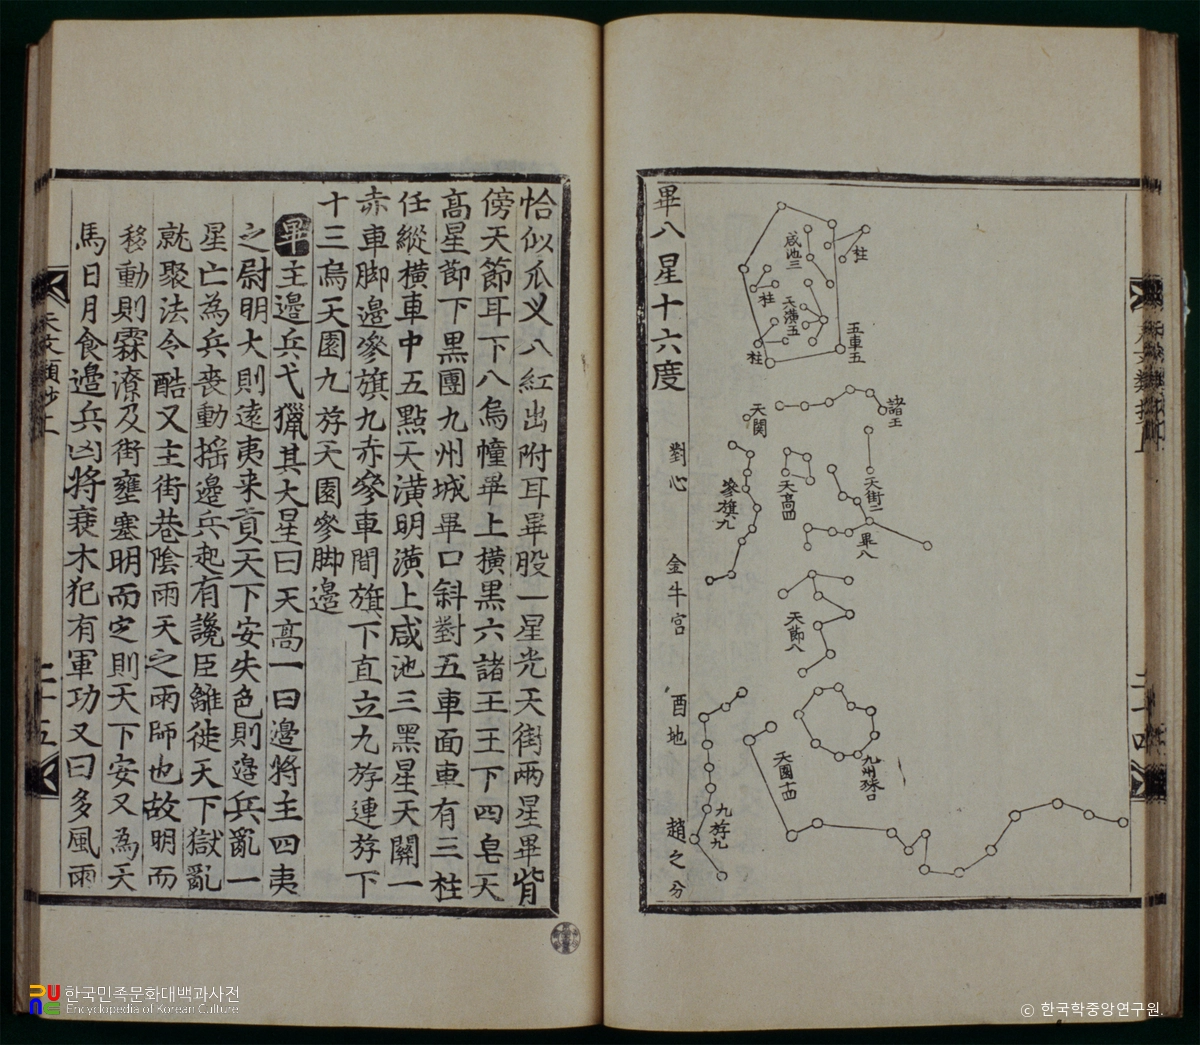 畢八星十六度
對心
金牛宮
酉地
趙之分
柱
咸池三
柱
天潢五
五車五
柱
諸王
天関
天街二
天高四
參旗九
畢八
天節八
九州殊口
天園十四
九斿九
恰似爪义八紅出附耳畢股一星光天街兩星畢背
傍天節耳下八烏幢畢上橫黒六諸王王下四皂天
髙星節下黒團九州城畢口斜對五車面車有三柱
任縱橫車中五點天潢明潢上咸池三黑星天關一
赤車脚邉參旗九赤參車間旗下直立九斿連斿下
十三烏天園九斿天園參脚邉
畢主邉兵弋獵其大星曰天高一曰邉將主四夷
之尉明大則逺夷来貢天下安失色則邉兵亂一
星亡為兵喪動揺邉兵起有讒臣離徙天下獄亂
就聚法令酷又主街巷陰雨天之雨師也故明而
移動則霖潦及街壅塞明而㝎則天下安又為天
馬日月食邉兵凶將衰木犯有軍功又曰多風雨
天文類抄上
二十五
한국민족문화대백과사전
Encyclopedia of Korean Culture
© 한국학중앙연구원.